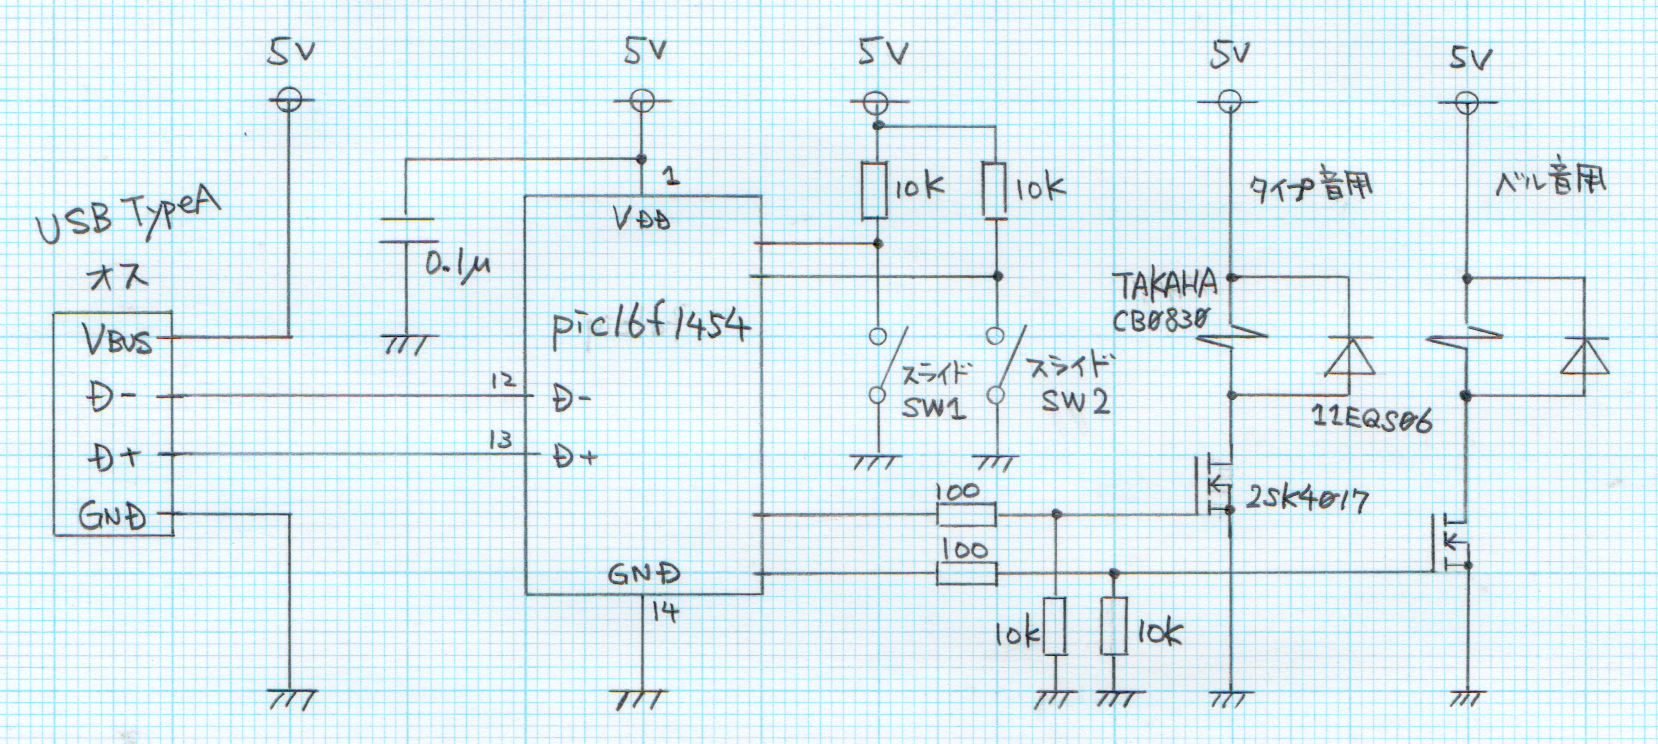 5V
5V
5V
5V
5V
USB TypeA
オス
VBUS
D-
D+
GND
0.1μ
1
VDD
pic16f1454
12
D-
13
D+
GND
14
10K
10K
スライド
SW1
スライド
SW2
100
100
10K
10K
タイプ音用
TAKAHA
CB0830
11EQS06
2SK4017
ベル音用